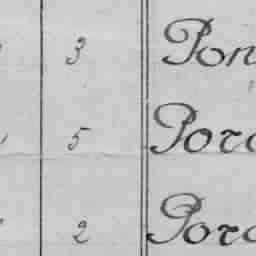 3 Pon
5 Poro
2 Poro